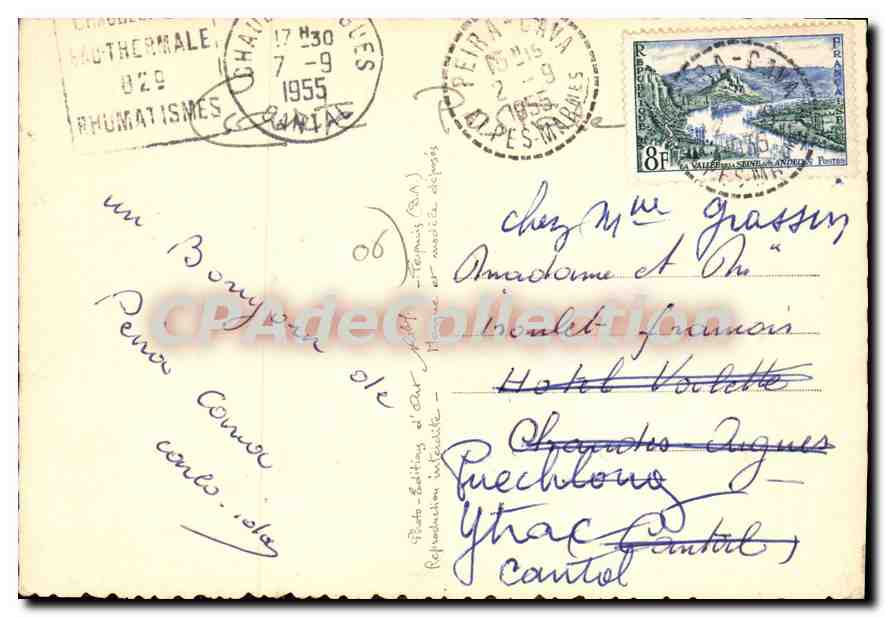 EAU THERMALE
82°
RHUMATISMES
CHAUDES
17 H 30
7 -9
1955
CANTAL
PEIRA-CAVA
2 -9
1955
ALPES-MARMES
REPUBLIQUE
FRANÇAISE
8F
LA VALLÉE DE LA SEINE AUX ANDELYS
POSTES
un Bonjour de
Peira Cava
06
Photo-Editions d'Art
Reproduction interdite - Marque et modèle déposés
CPAdeCollection
chez Mme Grassin
Madame et Mr
François
Hotel Valette
Chaudes-Aigues
Puechlong -
Ytrac Cantal,
Cantal